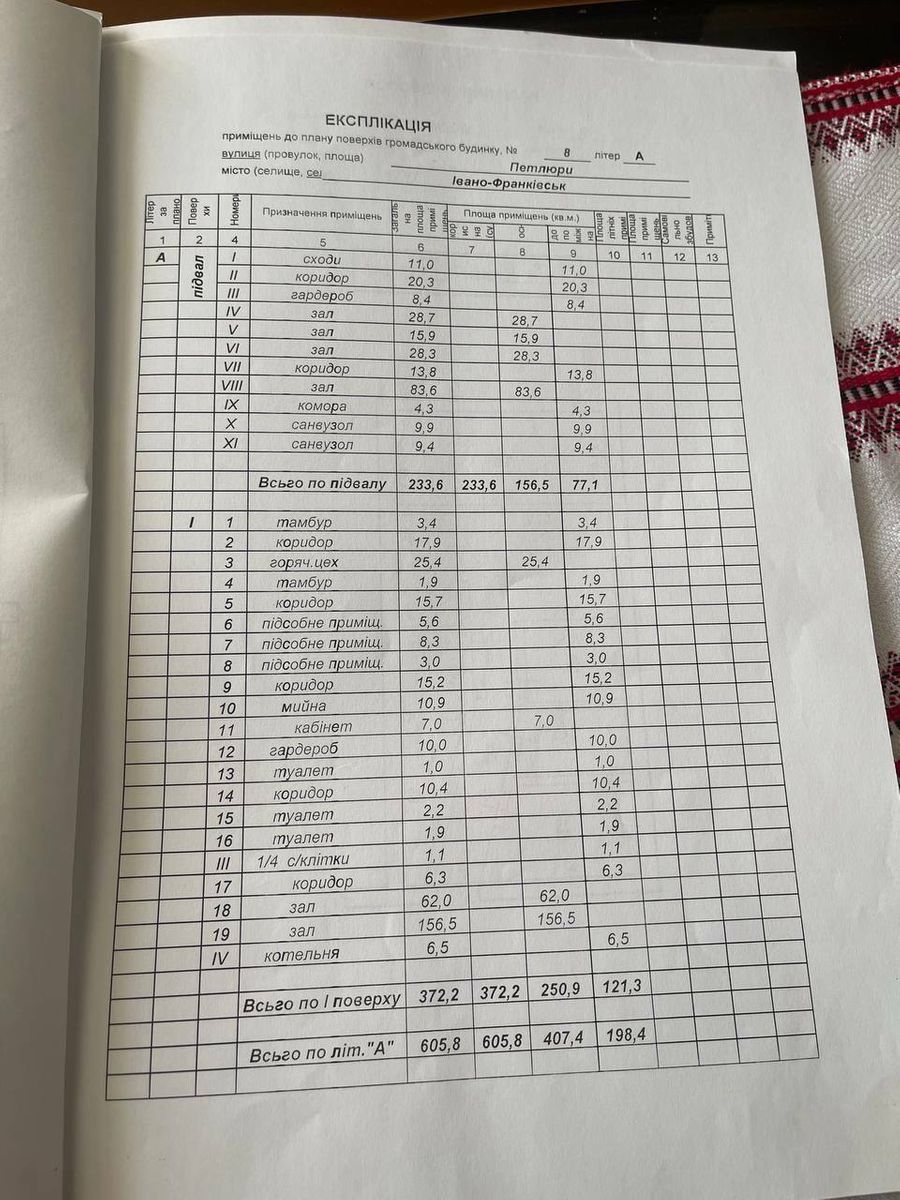 ЕКСПЛІКАЦІЯ
приміщень до плану поверхів громадського будинку, № 8 літер А
вулиця (провулок, площа) Петлюри
місто (селище, се Івано-Франківськ
Літер за плано Повер хи Номери Призначення приміщень загаль на площа примі щень Площа приміщень (кв.м.) площа літніх примі Площа примі щень Самові льно збудов Приміт
кор ис на (су осн до по між на
1 2 4 5 6 7 8 9 10 11 12 13
А підвал I сходи 11,0 11,0
II коридор 20,3 20,3
III гардероб 8,4 8,4
IV зал 28,7 28,7
V зал 15,9 15,9
VI зал 28,3 28,3
VII коридор 13,8 13,8
VIII зал 83,6 83,6
IX комора 4,3 4,3
X санвузол 9,9 9,9
XI санвузол 9,4 9,4
Всьго по підвалу 233,6 233,6 156,5 77,1
I 1 тамбур 3,4 3,4
2 коридор 17,9 17,9
3 горяч.цех 25,4 25,4
4 тамбур 1,9 1,9
5 коридор 15,7 15,7
6 підсобне приміщ. 5,6 5,6
7 підсобне приміщ. 8,3 8,3
8 підсобне приміщ. 3,0 3,0
9 коридор 15,2 15,2
10 мийна 10,9 10,9
11 кабінет 7,0 7,0
12 гардероб 10,0 10,0
13 туалет 1,0 1,0
14 коридор 10,4 10,4
15 туалет 2,2 2,2
16 туалет 1,9 1,9
III 1/4 с/клітки 1,1 1,1
17 коридор 6,3 6,3
18 зал 62,0 62,0
19 зал 156,5 156,5
IV котельня 6,5 6,5
Всьго по I поверху 372,2 372,2 250,9 121,3
Всьго по літ."А" 605,8 605,8 407,4 198,4